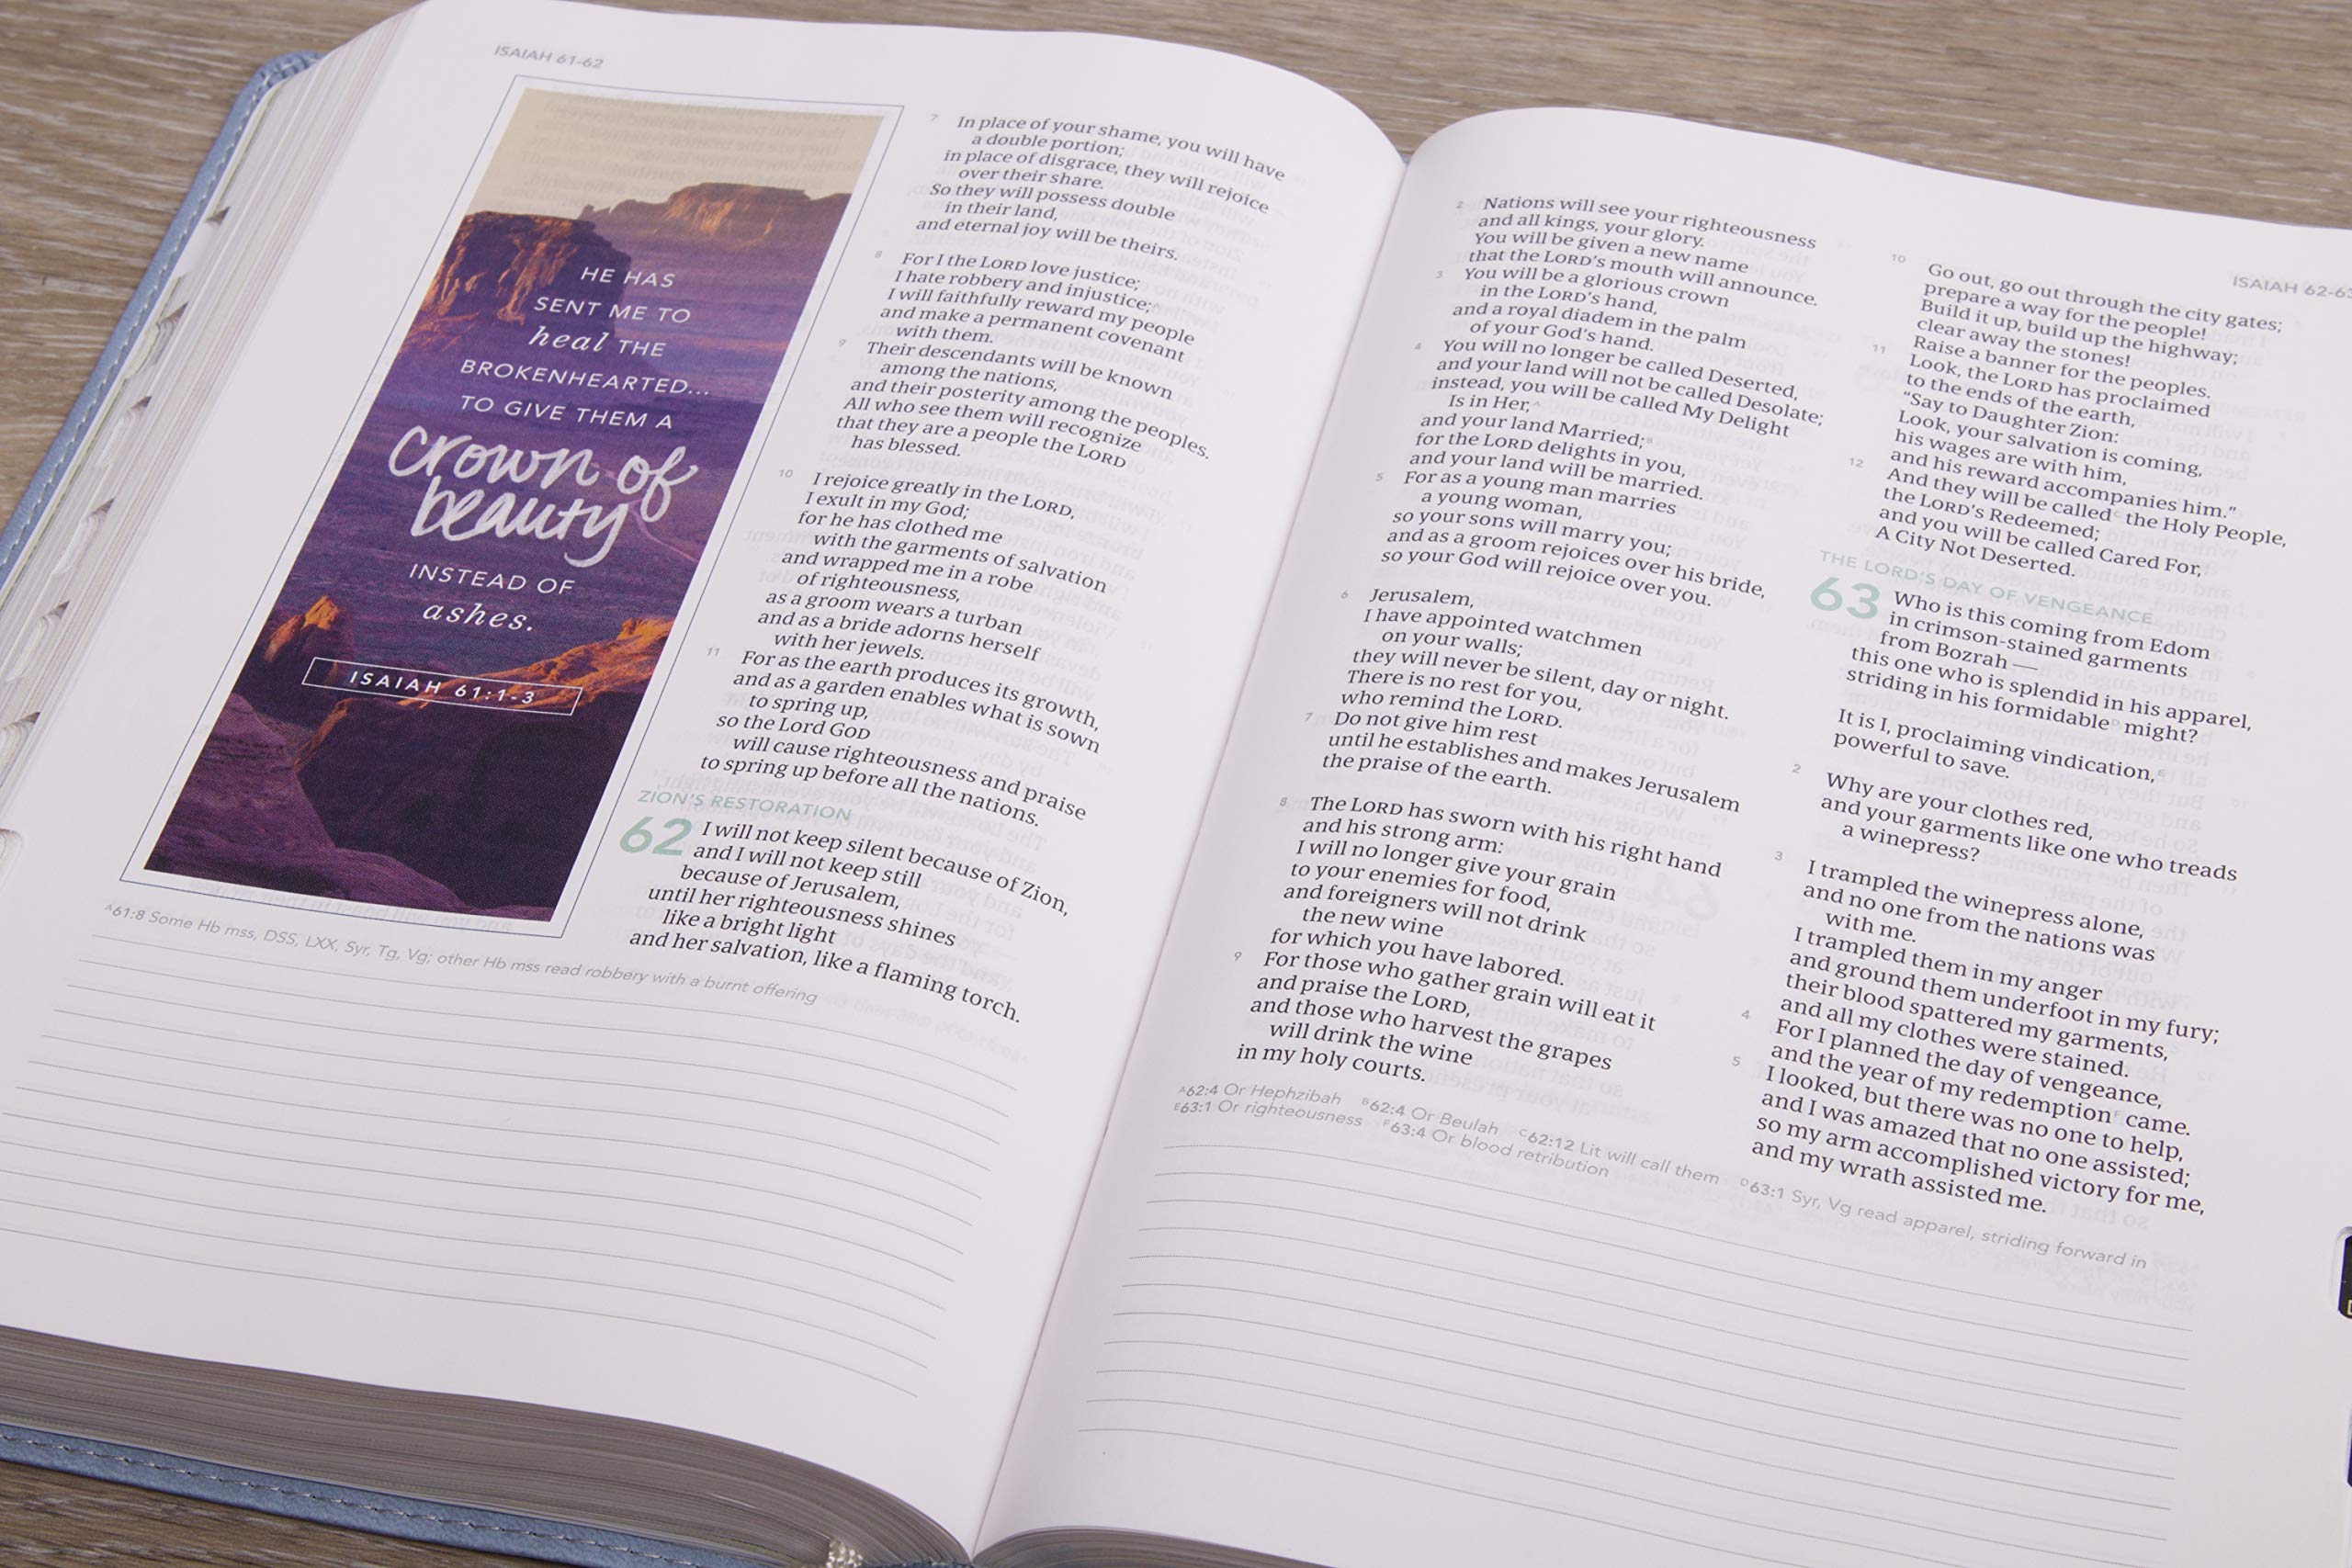 ISAIAH 61-62
HE HAS
SENT ME TO
heal THE
BROKENHEARTED...
TO GIVE THEM A
crown of
beauty
INSTEAD OF
ashes.
ISAIAH 61:1-3
7 In place of your shame, you will have
a double portion;
in place of disgrace, they will rejoice
over their share.
So they will possess double
in their land,
and eternal joy will be theirs.
8 For I the LORD love justice;
I hate robbery and injustice;A
I will faithfully reward my people
and make a permanent covenant
with them.
9 Their descendants will be known
among the nations,
and their posterity among the peoples.
All who see them will recognize
that they are a people the LORD
has blessed.
10 I rejoice greatly in the LORD,
I exult in my God;
for he has clothed me
with the garments of salvation
and wrapped me in a robe
of righteousness,
as a groom wears a turban
and as a bride adorns herself
with her jewels.
11 For as the earth produces its growth,
and as a garden enables what is sown
to spring up,
so the Lord GOD
will cause righteousness and praise
to spring up before all the nations.
ZION'S RESTORATION
62 I will not keep silent because of Zion,
and I will not keep still
because of Jerusalem,
until her righteousness shines
like a bright light
and her salvation, like a flaming torch.
A61:8 Some Hb mss, DSS, LXX, Syr, Tg, Vg; other Hb mss read robbery with a burnt offering
2 Nations will see your righteousness
and all kings, your glory.
You will be given a new name
that the LORD's mouth will announce.
3 You will be a glorious crown
in the LORD's hand,
and a royal diadem in the palm
of your God's hand.
4 You will no longer be called Deserted,
and your land will not be called Desolate;
instead, you will be called My Delight
Is in Her,A
and your land Married;B
for the LORD delights in you,
and your land will be married.
5 For as a young man marries
a young woman,
so your sons will marry you;
and as a groom rejoices over his bride,
so your God will rejoice over you.
6 Jerusalem,
I have appointed watchmen
on your walls;
they will never be silent, day or night.
There is no rest for you,
who remind the LORD.
7 Do not give him rest
until he establishes and makes Jerusalem
the praise of the earth.
8 The LORD has sworn with his right hand
and his strong arm:
I will no longer give your grain
to your enemies for food,
and foreigners will not drink
the new wine
for which you have labored.
9 For those who gather grain will eat it
and praise the LORD,
and those who harvest the grapes
will drink the wine
in my holy courts.
ISAIAH 62-63
10 Go out, go out through the city gates;
prepare a way for the people!
Build it up, build up the highway;
clear away the stones!
Raise a banner for the peoples.
11 Look, the LORD has proclaimed
to the ends of the earth,
"Say to Daughter Zion:
Look, your salvation is coming,
his wages are with him,
and his reward accompanies him."
12 And they will be calledC the Holy People,
the LORD's Redeemed;
and you will be called Cared For,
A City Not Deserted.
THE LORD'S DAY OF VENGEANCE
63 Who is this coming from Edom
in crimson-stained garments
from Bozrah —
this one who is splendid in his apparel,
striding in his formidableD might?
It is I, proclaiming vindication,E
powerful to save.
2 Why are your clothes red,
and your garments like one who treads
a winepress?
3 I trampled the winepress alone,
and no one from the nations was
with me.
I trampled them in my anger
and ground them underfoot in my fury;
their blood spattered my garments,
and all my clothes were stained.
4 For I planned the day of vengeance,
and the year of my redemptionF came.
5 I looked, but there was no one to help,
and I was amazed that no one assisted;
so my arm accomplished victory for me,
and my wrath assisted me.
A62:4 Or Hephzibah B62:4 Or Beulah C62:12 Lit will call them D63:1 Syr, Vg read apparel, striding forward in
E63:1 Or righteousness F63:4 Or blood retribution